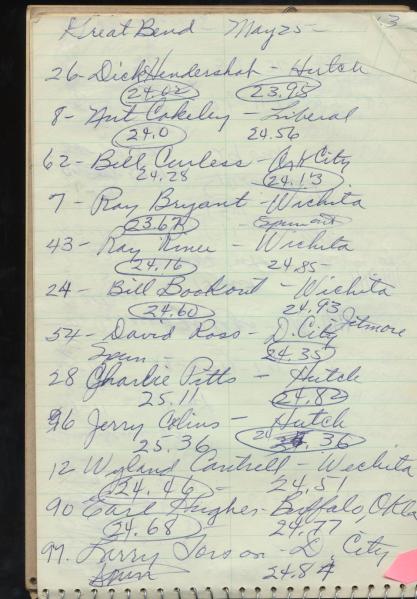 Great Bend - May 25 - 3
26 - Dick Hendershot - Hutch
24.02 23.98
8 - Nut Cakeley - Liberal
24.0 24.56
62 - Bill Curless - Ok City
24.28 24.13
7 - Ray Bryant - Wichita
23.62 Spun out
43 - Ray - Wichita
24.76 24.85 -
24 - Bill Bookout - Wichita
24.60 24.93
54 - David Ross - D. City Jetmore
Spun - 24.35
28 Charlie Pitts - Hutch
25.11 24.82
96 Jerry - Hutch
25.36 24.36
12 Wyland Cantrell - Wichita
24.46 - 24.51
90 Earl Hughes - Buffalo, Okla
24.68 24.77
99. Larry - D. City
Spun 24.84